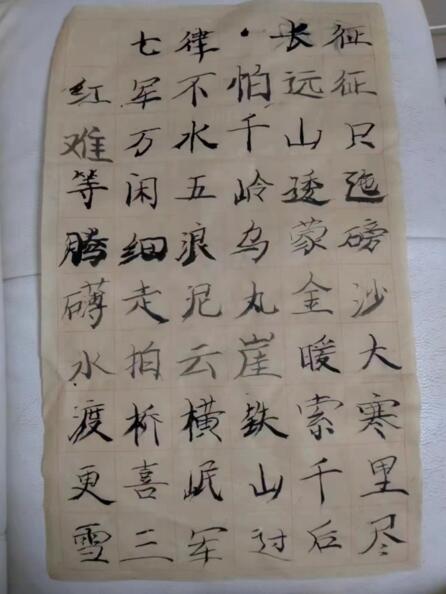 七律·长征
红军不怕远征
难万水千山只
等闲五岭逶迤
腾细浪乌蒙磅
礴走泥丸金沙
水拍云崖暖大
渡桥横铁索寒
更喜岷山千里
雪三军过后尽